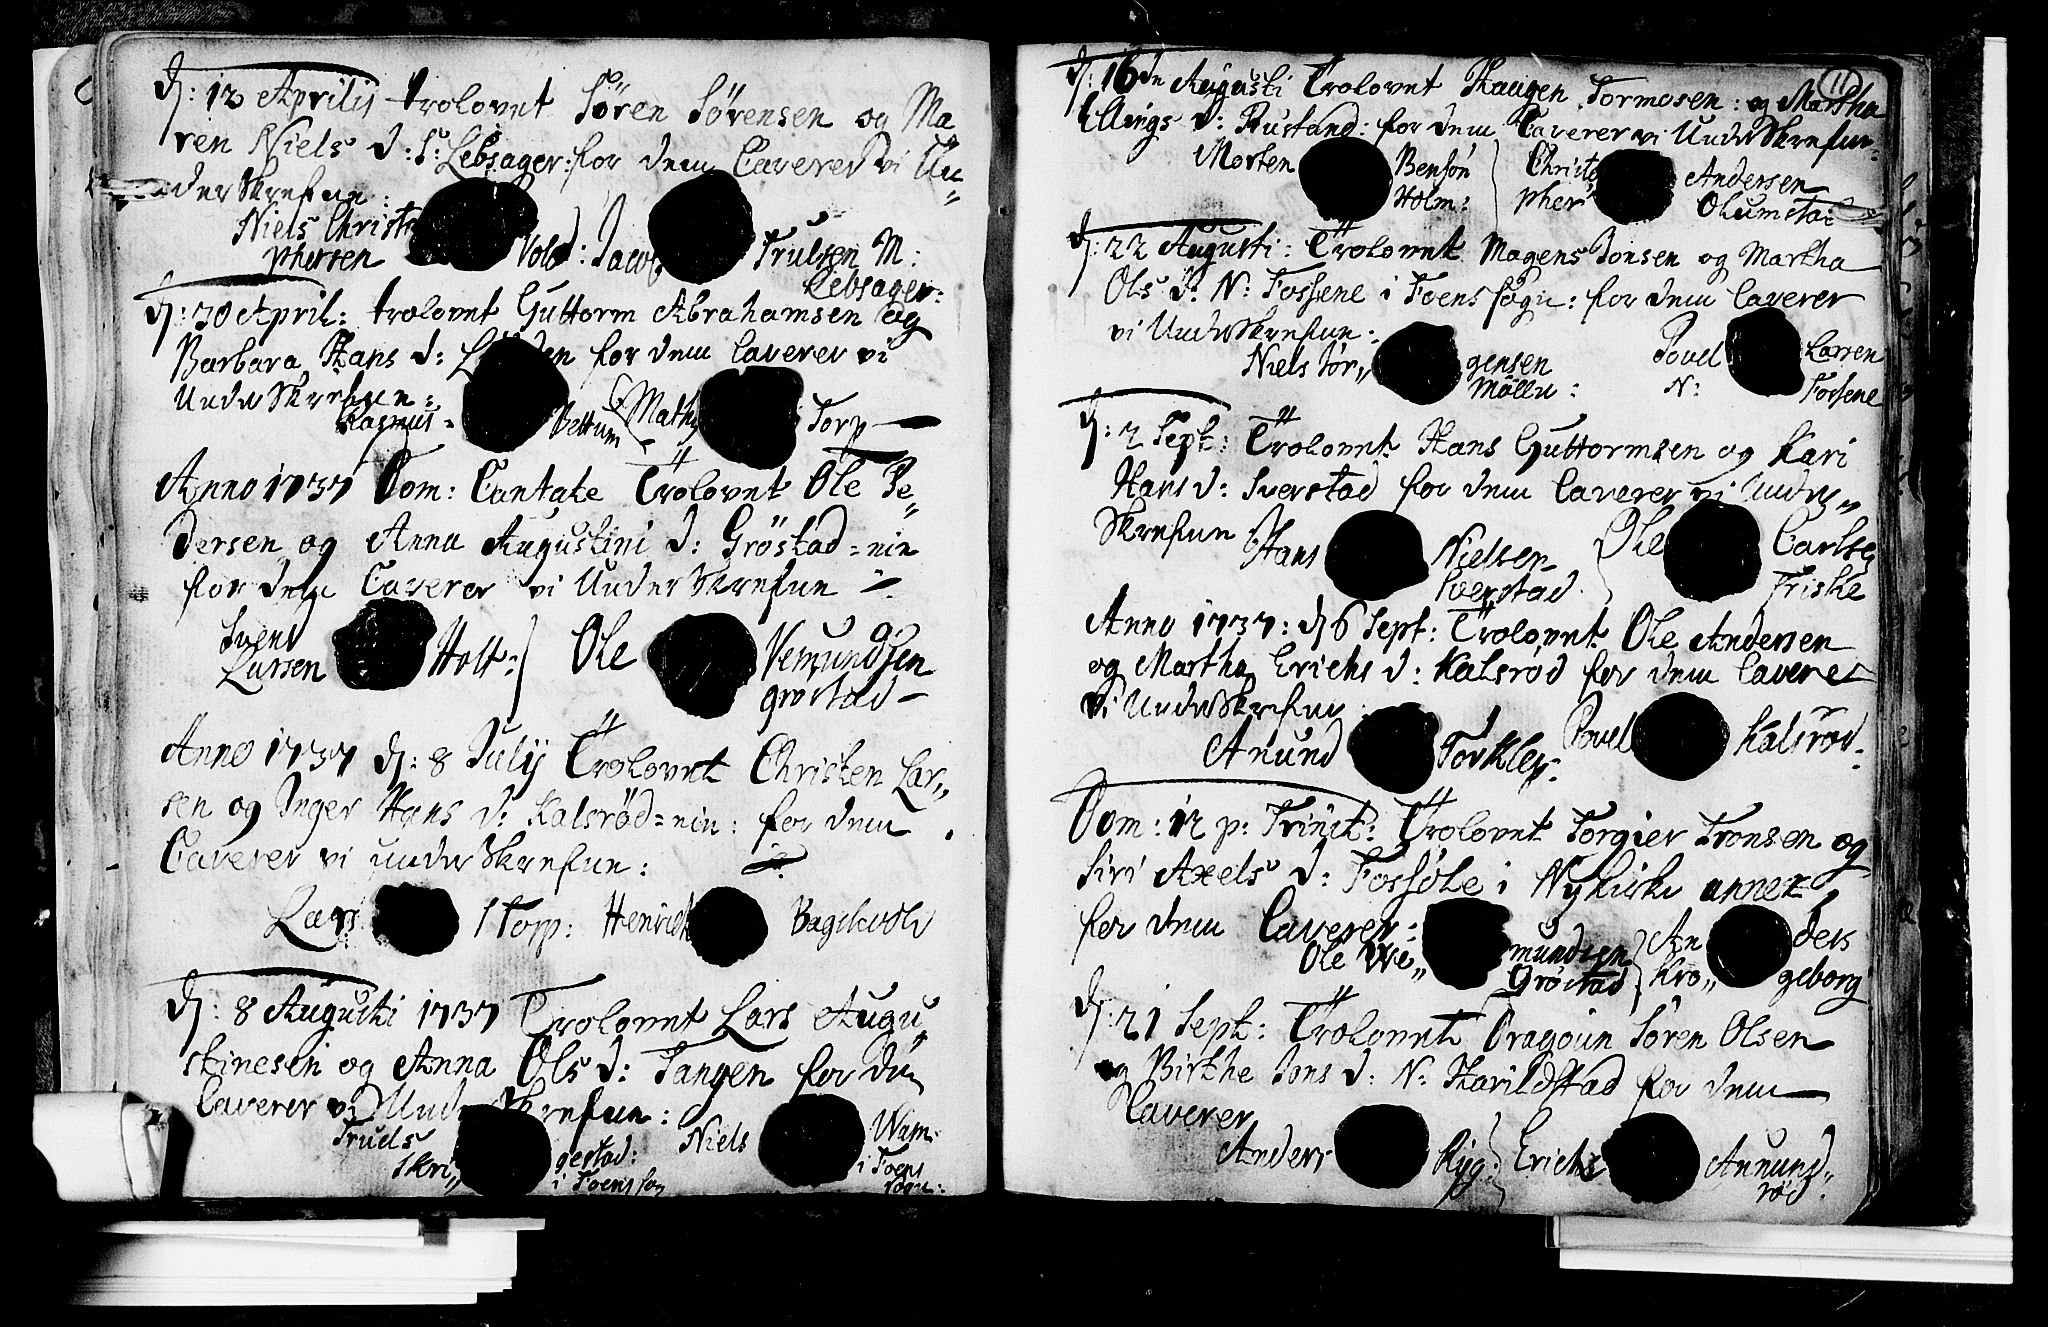 d: 12 Aprilis trolovet Sören Sörensen og Ma
ren Niels d: S: Lebsager: for dem Caverer vi Un=
der Skrefne:
Niels Christo Vold: Jacob Trulsen M:
phersen Lebsager:
d: 30 April: trolovet Guttorm Abrahamsen og
Barbara Hans d: for dem Caverer vi
Under Skrefne:
Rasmus Vettum Mathis Torp
Anno 1737 Dom: Cantate Trolovet Ole Pe=
dersen og Anna Augustini d: Gröstad=eie
for dem Caverer vi Under Skrefne
Svend Holt: Ole Vemundsen
Larsen Gröstad
Anno 1737 d: 8 July Trolovet Christen Lar=
sen og Inger Hans d: Kalsröd=eie: for dem
Caverer vi under Skrefne:
Lars Torp: Henrich Bagskodt
d: 8 Augusti 1737 Trolovet Lars Augu=
stinesen og Anna Ols d: Tangen for dem
Caverer vi Under Skrefne:
Truels Niels Wam
Skri= gestad: i Foens
i Foens sog sogn:
11
d: 16de Augusti Trolovet Haagen Tormosen: og Martha
Ellings d: Rustand: for dem Caverer vi Under Skrefne=
Morten Bensön Christo Andersen
Holm: pher Olumstad
d: 22 Augusti: Trolovet Magens Jonsen og Martha
Ols d: N: Fossene i Foens sogn: for dem Caverer
vi Under Skrefne:
Niels Jör= gensen Povel Larsen
Möller: N: Fossene
d: 2 Sept: Trolovet Hans Guttormsen og Kari
Hans d: Sverstad for dem Caverer vi Under=
Skrefne Hans Nielsen Ole Carlsen
Sverstad Friske
Anno 1737: d 6 Sept: Trolovet Ole Andersen
og Martha Erichs d: Kalsröd for dem Caverer
Vi Under Skrefne
Anund Torkles: Povel Kalsröd:
Dom: 12 p: Trinit: Trolovet Torgier Tronsen og
Siri Axels d: Fossöle i Nykirke annex
for dem Caverer:
Ole We= mundsen An ders
Gröstad Kro= geborg
d: 21 Sept: Trolovet Dragoun Sören Olsen
og Birthe Jons d: N: Harildstad for dem
Caverer
Anders Ryg: Erich Annund=
röd: